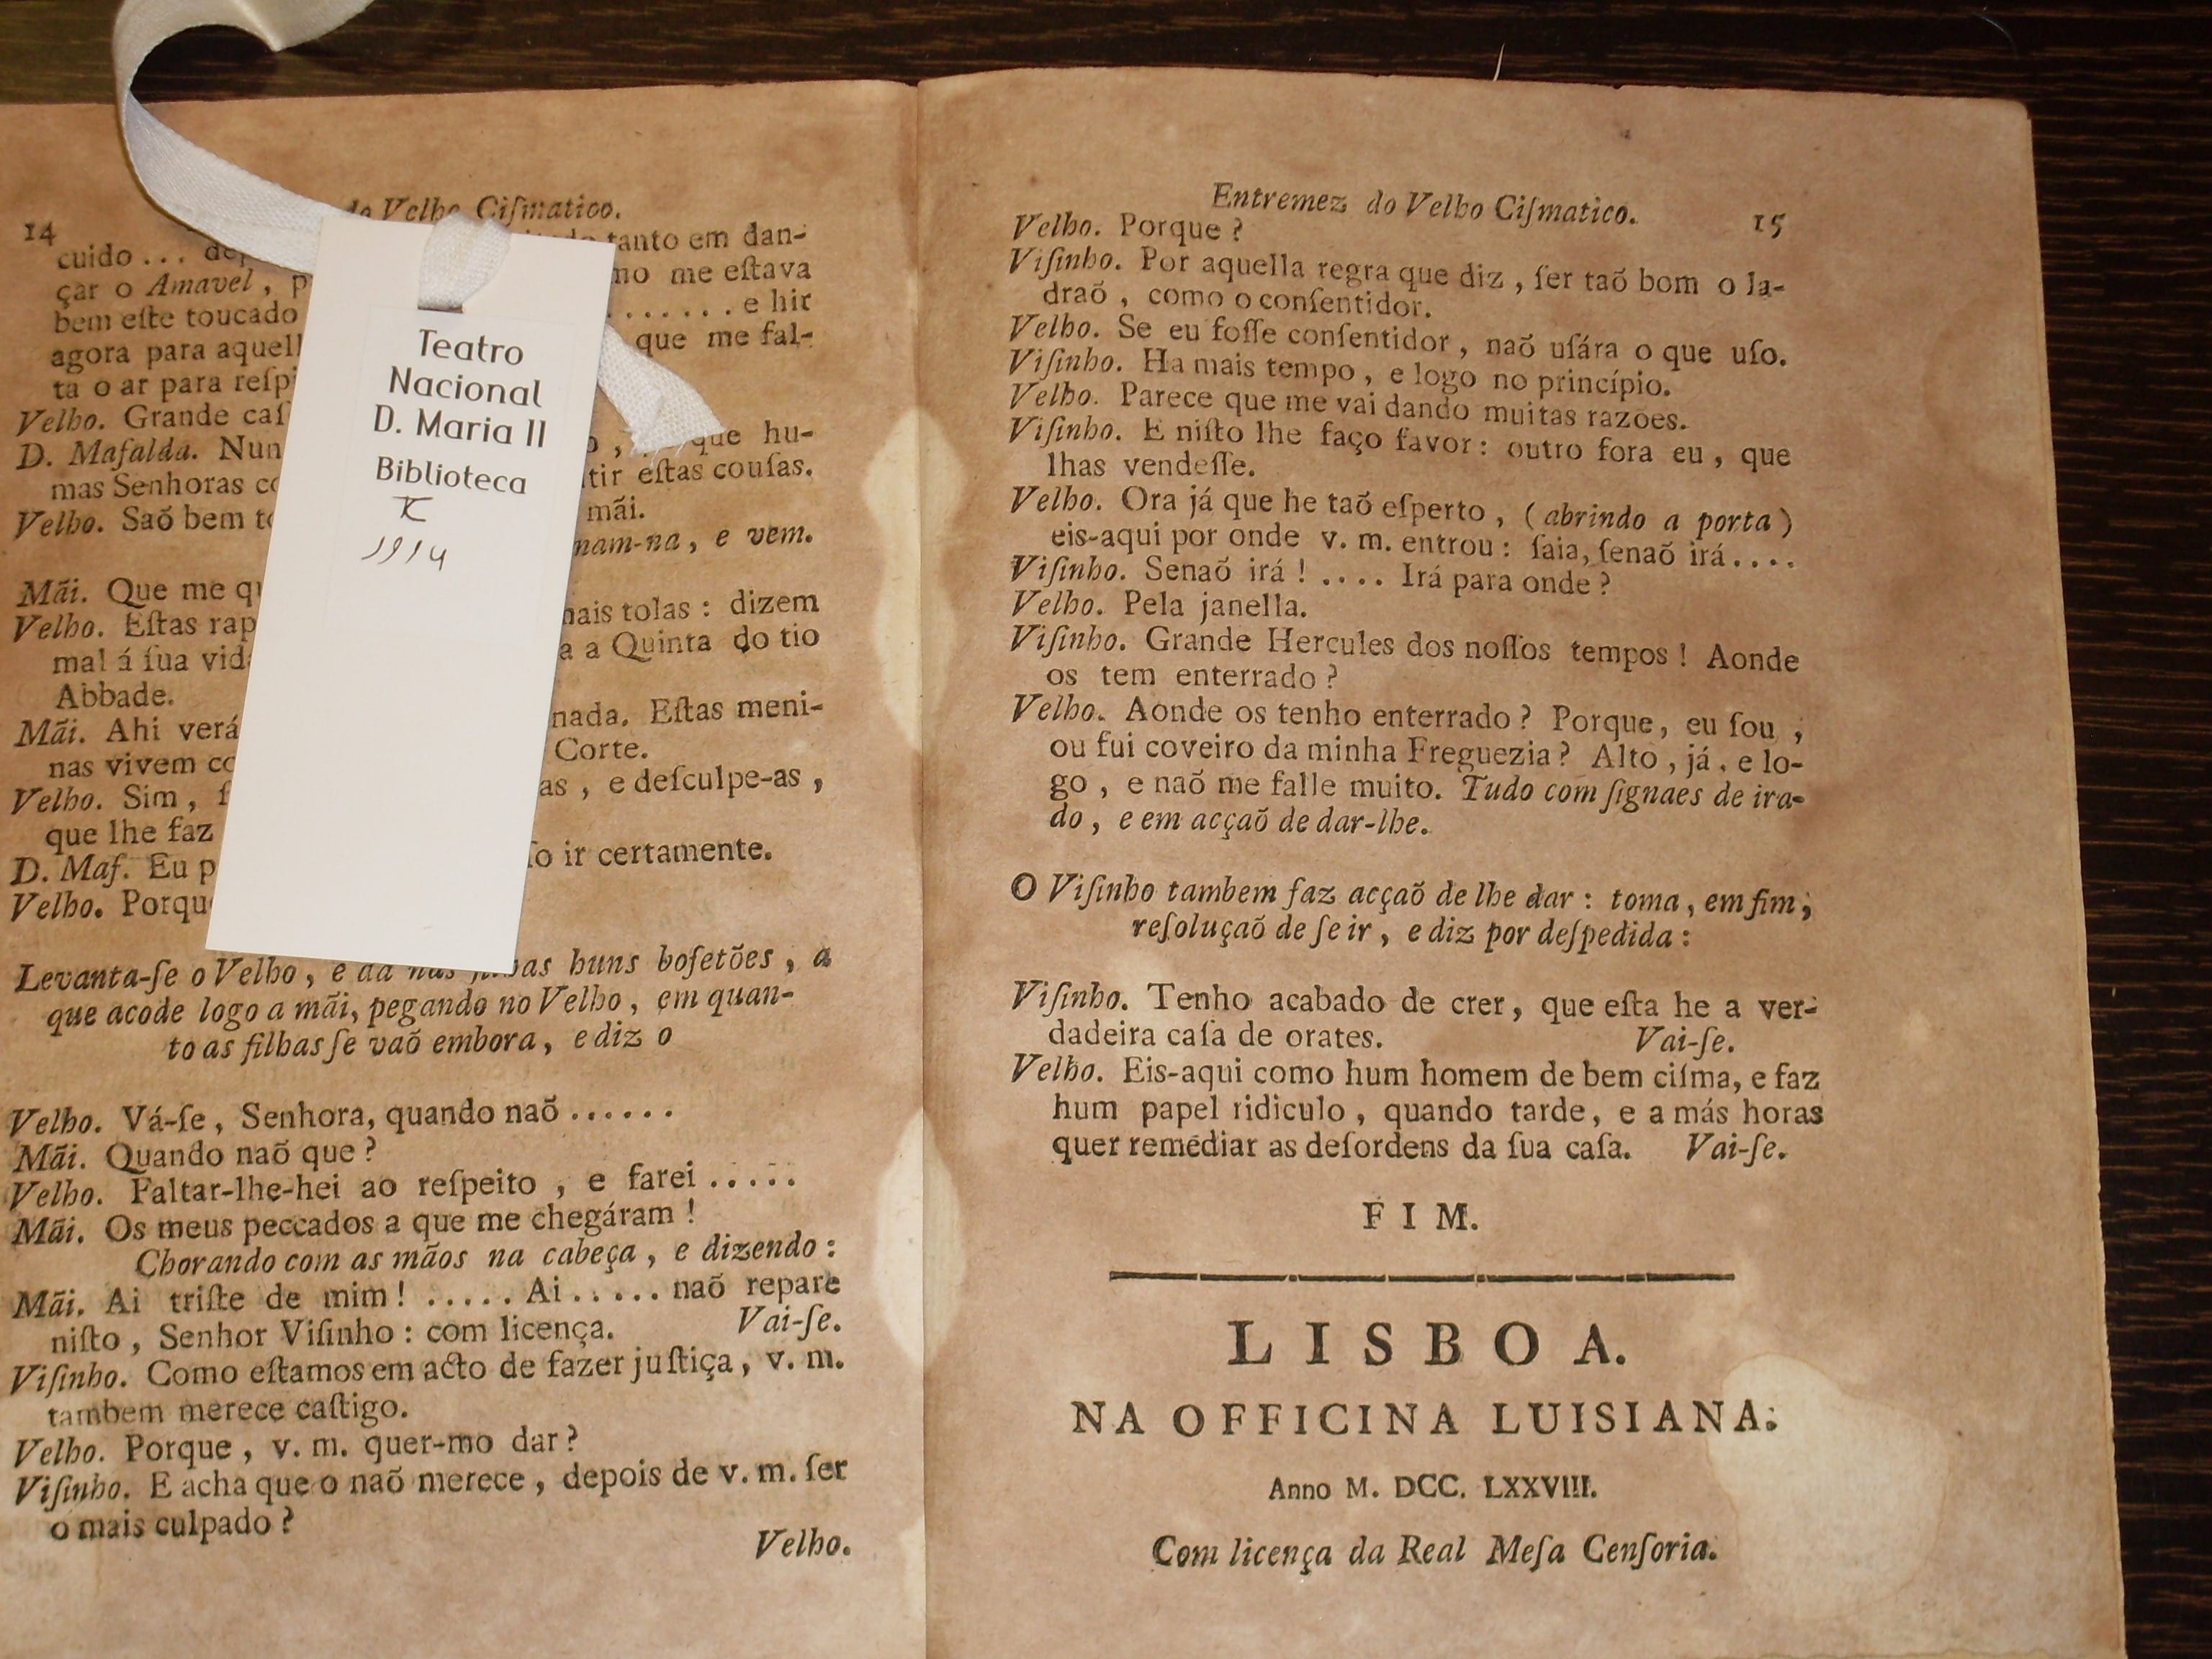 14
do Velho Ciſmatico.
cuido ... tanto em dan-
çar o Amavel, me eſtava
bem eſte toucado ....... e hir
agora para que me fal-
ta o ar para
Velho. Grande
D. Mafalda. que hu-
mas Senhoras eſtas couſas.
Velho. Saõ bem mãi.
e vem.
Mãi. Que me
Velho. Eſtas tolas: dizem
mal á ſua a Quinta do tio
Abbade.
Mãi. Ahi verá nada. Eſtas meni-
nas vivem Corte.
Velho. Sim, e deſculpe-as,
que lhe faz
D. Maf. Eu ir certamente.
Velho.
Levanta-ſe o Velho, e dá nas filhas huns bofetões, a
que acode logo a mãi, pegando no Velho, em quan-
to as filhas ſe vaõ embora, e diz o
Velho. Vá-ſe, Senhora, quando naõ ......
Mãi. Quando naõ que?
Velho. Faltar-lhe-hei ao reſpeito, e farei .....
Mãi. Os meus peccados a que me chegáram!
Chorando com as mãos na cabeça, e dizendo:
Mãi. Ai triſte de mim! ..... Ai ..... naõ repare
niſto, Senhor Viſinho: com licença. Vai-ſe.
Viſinho. Como eſtamos em acto de fazer juſtiça, v. m.
tambem merece caſtigo.
Velho. Porque, v. m. quer-mo dar?
Viſinho. E acha que o naõ merece, depois de v. m. ſer
o mais culpado?
Velho.
Teatro
Nacional
D. Maria II
Biblioteca
1914
Entremez do Velho Ciſmatico. 15
Velho. Porque?
Viſinho. Por aquella regra que diz, ſer taõ bom o la-
draõ, como o conſentidor.
Velho. Se eu foſſe conſentidor, naõ uſára o que uſo.
Viſinho. Ha mais tempo, e logo no princípio.
Velho. Parece que me vai dando muitas razões.
Viſinho. E niſto lhe faço favor: outro fora eu, que
lhas vendeſſe.
Velho. Ora já que he taõ eſperto, (abrindo a porta)
eis-aqui por onde v. m. entrou: ſaia, ſenaõ irá....
Viſinho. Senaõ irá! .... Irá para onde?
Velho. Pela janella.
Viſinho. Grande Hercules dos noſſos tempos! Aonde
os tem enterrado?
Velho. Aonde os tenho enterrado? Porque, eu ſou,
ou fui coveiro da minha Freguezia? Alto, já, e lo-
go, e naõ me falle muito. Tudo com ſignaes de ira-
do, e em acçaõ de dar-lhe.
O Viſinho tambem faz acçaõ de lhe dar: toma, em fim,
reſoluçaõ de ſe ir, e diz por deſpedida:
Viſinho. Tenho acabado de crer, que eſta he a ver-
dadeira caſa de orates. Vai-ſe.
Velho. Eis-aqui como hum homem de bem ciſma, e faz
hum papel ridiculo, quando tarde, e a más horas
quer remediar as deſordens da ſua caſa. Vai-ſe.
FIM.
LISBOA.
NA OFFICINA LUISIANA.
Anno M. DCC. LXXVIII.
Com licença da Real Meſa Cenſoria.